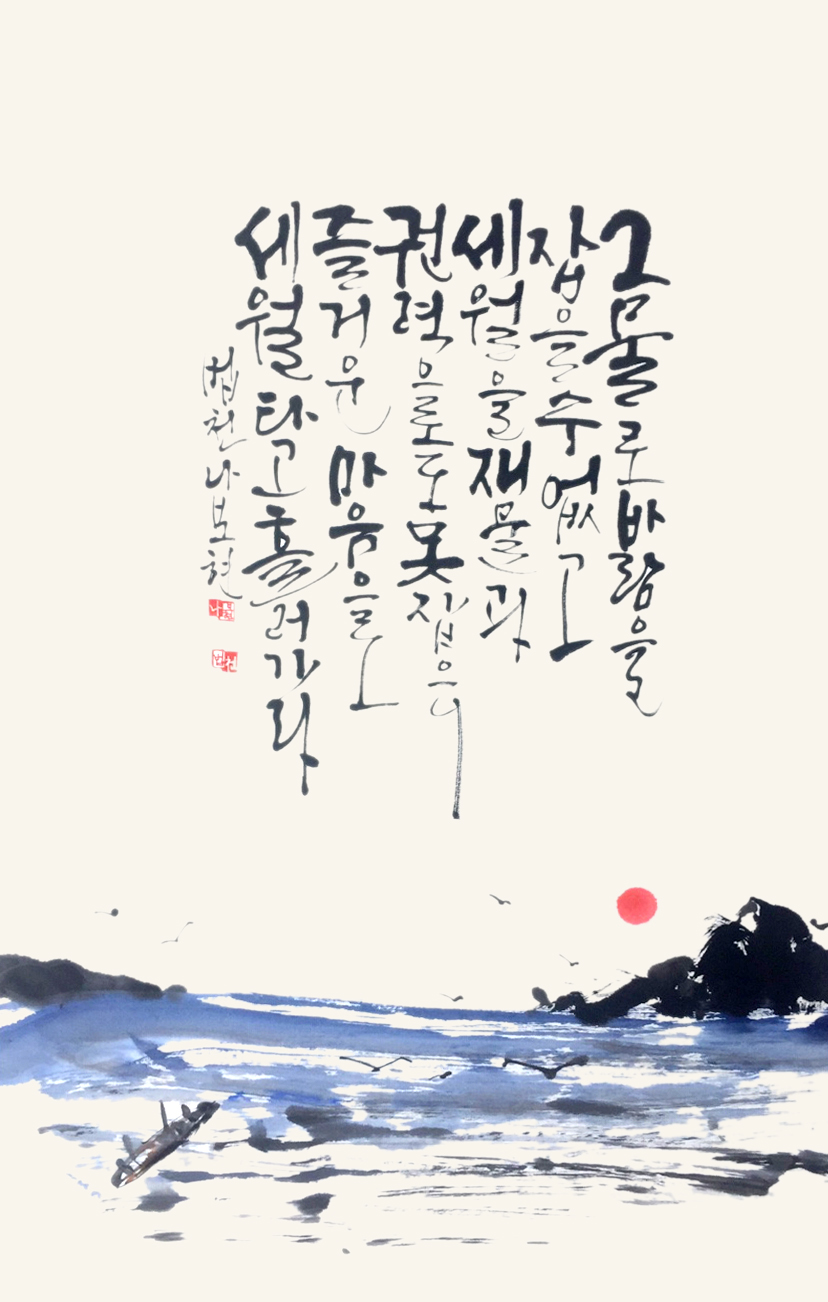 그물로 바람을
잡을 수 없고
세월을 재물과
권력으로도 못 잡으니
즐거운 마음으로
세월 타고 흘러가라
법천 나보현